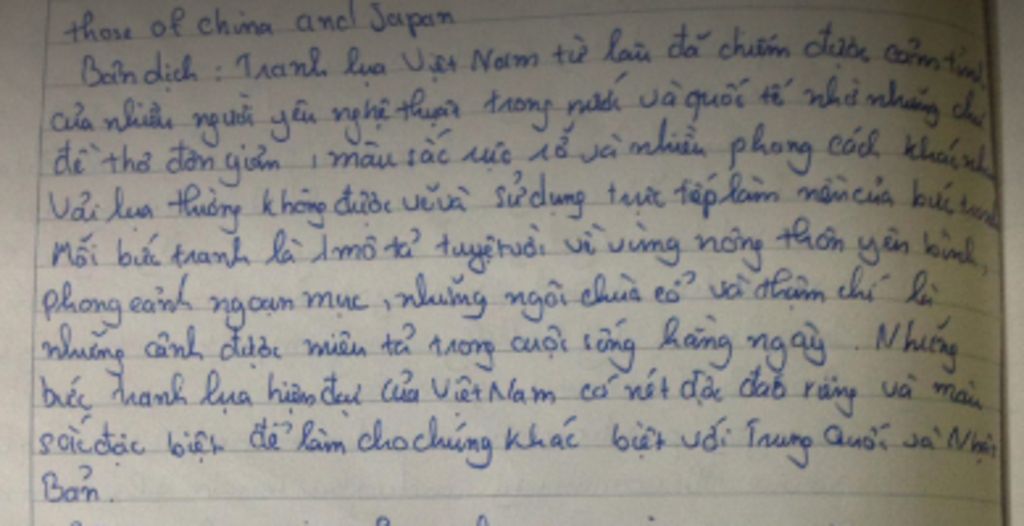 those of China and Japan
Bản dịch : Tranh lụa Việt Nam từ lâu đã chiếm được cảm tình
của nhiều người yêu nghệ thuật trong nước và quốc tế nhờ những chủ
đề thơ đơn giản , màu sắc rực rỡ và nhiều phong cách khác
Vải lụa thường không được vẽ và sử dụng trực tiếp làm nền của bức tranh
Mỗi bức tranh là 1 mô tả tuyệt vời về vùng nông thôn yên bình,
phong cảnh ngoạn mục , những ngôi chùa cổ và thậm chí là
những cảnh được miêu tả trong cuộc sống hằng ngày . Những
bức tranh lụa hiện đại của Việt Nam có nét độc đáo riêng và màu
sắc đặc biệt để làm cho chúng khác biệt với Trung Quốc và Nhật
Bản .